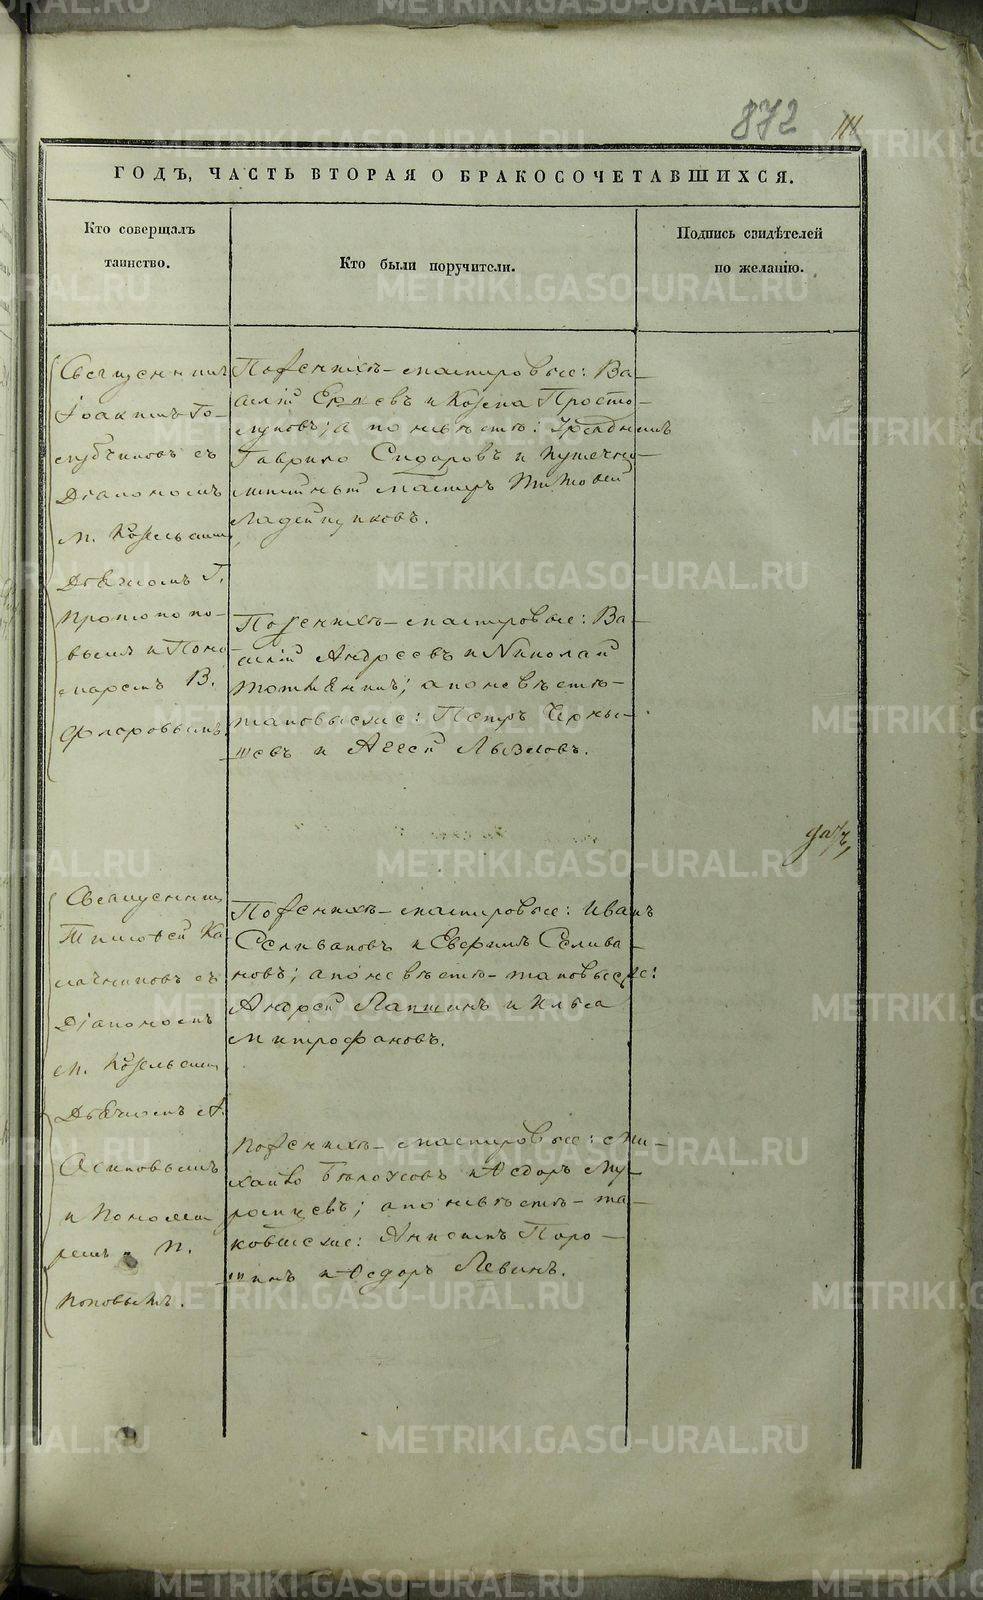 872
111
ГОДЪ, ЧАСТЬ ВТОРАЯ О БРАКОСОЧЕТАВШИХСЯ.
Кто совершалъ
таинство.
Кто были поручители.
Подпись свидѣтелей
по желанію.
Священникъ
Іоакимъ Го-
лубчиковъ съ
Діакономъ
М. Козельскимъ
Дьячкомъ Г.
Протопопо-
вымъ и Поно
маремъ В.
Флоровымъ.
По женихѣ - мастеровые: Ва-
силій Ершевъ и Козма Просто-
луповъ; а по невѣстѣ: Урядникъ
Гаврило Сидоровъ и
мастеръ Тимофей
Ладейщиковъ.
По женихѣ - мастеровые: Ва-
силій Андреевъ и Николай
а по невѣстѣ -
таковыеже: Петръ Черны-
шевъ и Агей Лызловъ.
датъ,
Священникъ
Тимофей Ка
лачниковъ съ
Діакономъ
М. Козельским
Дьячкомъ А.
Осиповымъ
и Понома
ремъ П.
Поповымъ.
По женихѣ - мастеровые: Иванъ
Селивановъ и Еверимъ Селива-
новъ; а по невѣстѣ - таковыеже:
Андрей Лапшинъ и Илья
Митрофановъ.
По женихѣ - мастеровые: Ми-
хайло Бѣлоусовъ и Ѳедоръ Му-
ромцевъ; а по невѣстѣ - та-
ковыеже: Анисимъ Паро-
шинъ и Ѳедоръ Левинъ.
METRIKI.GASO-URAL.RU